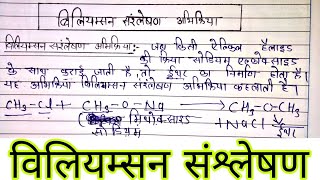 विलियम्सन संश्लेषण अभिक्रिया
विलियम्सन संश्लेषण अभिक्रिया:- जब किसी ऐल्किल हैलाइड
की क्रिया सोडियम एल्कोक्साइड
के साथ कराई जाती है, तो ईथर का निर्माण होता है।
यह अभिक्रिया विलियम्सन संश्लेषण अभिक्रिया कहलाती है।
CH₃-Cl + CH₃-O-Na → CH₃-O-CH₃
सोडियम मिथोक्साइड + NaCl ईथर
विलियम्सन संश्लेषण